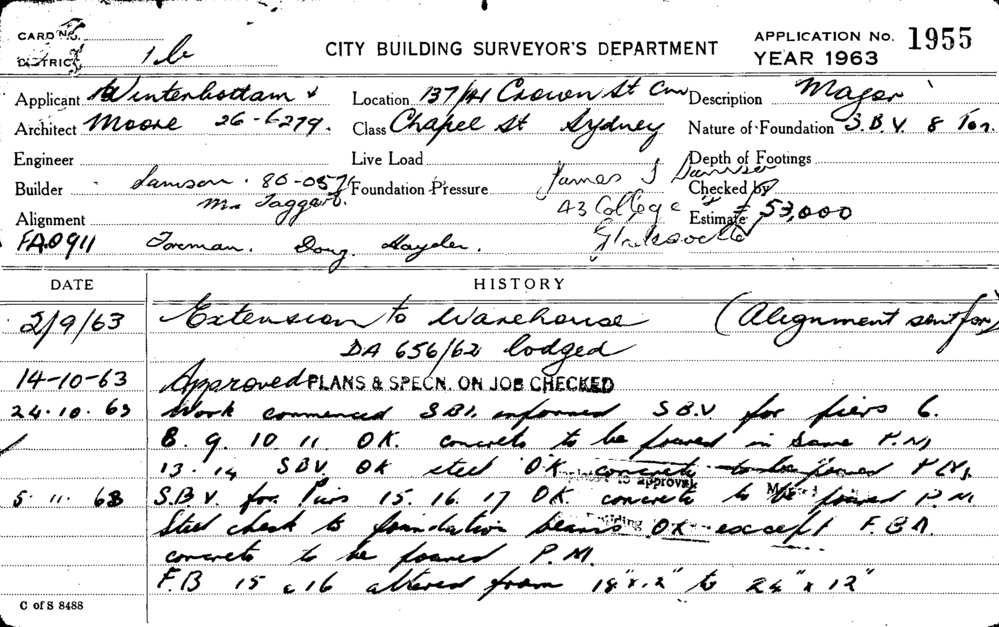 CARD No.
DISTRICT 1b
CITY BUILDING SURVEYOR'S DEPARTMENT
APPLICATION No. 1955
YEAR 1963
Applicant Winterbottam & Location 137/41 Crown St Cnr Description Major
Architect Moore 26-6279. Class Chapel St Sydney Nature of Foundation S.B.V. 8 Ton
Engineer Live Load Depth of Footings
Builder Samson. 80-057 Foundation Pressure James S Samson Checked by
Mr Taggart. 43 College Estimate £ 53,000
Alignment
FA0911 Foreman. Doug. Hayden.
DATE HISTORY
2/9/63 Extension to Warehouse (Alignment sent for)
DA 656/62 lodged
14-10-63 Approved PLANS & SPECN. ON JOB CHECKED
24.10.63 Work commenced S.B.I. informed S.B.V for piers 6.
8. 9. 10 11 OK. concrete to be poured in same P.M.
13. 14 SBV. OK steel OK concrete to be poured P.M.
to approval
5. 11. 63 S.B.V. for Piers 15. 16. 17 OK concrete to be poured P.M.
Steel check to foundation beams OK except F.B.
concrete to be poured P.M.
F.B 15 & 16 altered from 18"x12" to 24" x 12"
C of S 8488